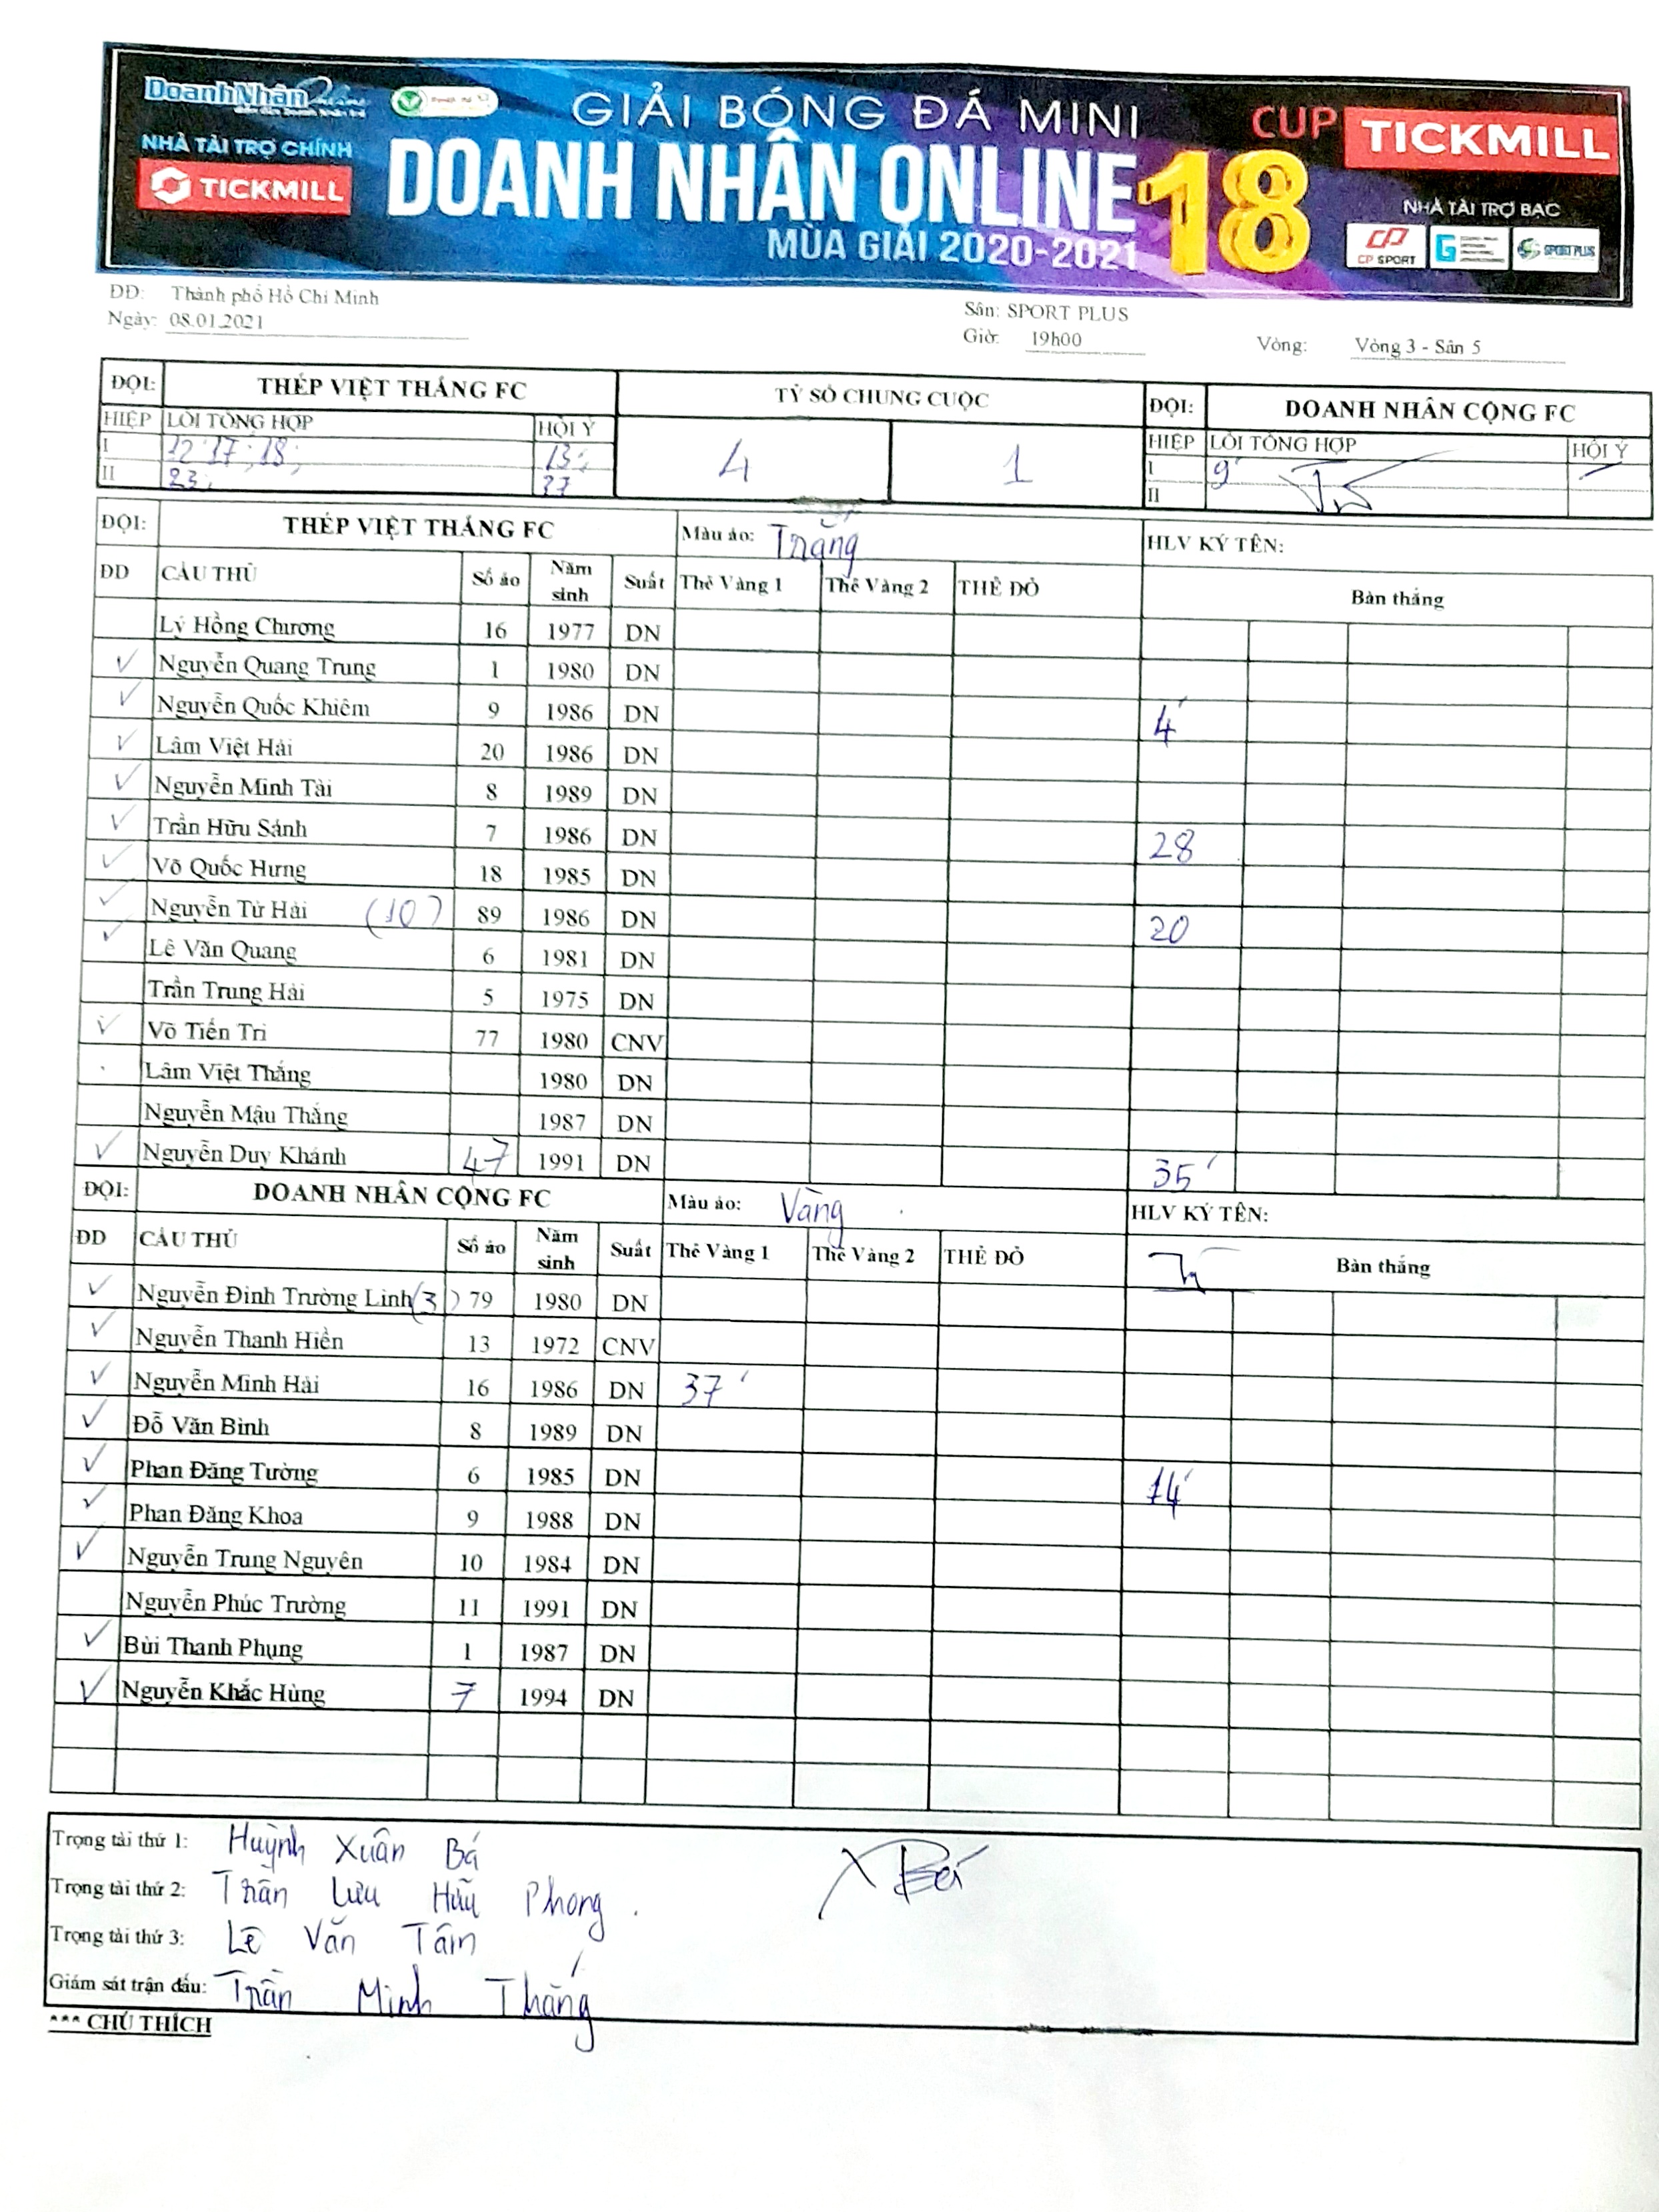 DoanhNhân
NHÀ TÀI TRỢ CHÍNH
TICKMILL
GIẢI BÓNG ĐÁ MINI
DOANH NHÂN ONLINE 18
MÙA GIẢI 2020-2021
CUP TICKMILL
NHÀ TÀI TRỢ BẠC
CP SPORT
SPORT PLUS
ĐĐ: Thành phố Hồ Chí Minh
Sân: SPORT PLUS
Ngày: 08.01.2021
Giờ: 19h00
Vòng: Vòng 3 - Sân 5
ĐỘI: THÉP VIỆT THẮNG FC TỶ SỐ CHUNG CUỘC ĐỘI: DOANH NHÂN CỘNG FC
HIỆP LỖI TỔNG HỢP HỘI Ý 4 1 HIỆP LỖI TỔNG HỢP HỘI Ý
I 12' 17'; 18'; 13'; I 9'
II 23; II
ĐỘI: THÉP VIỆT THẮNG FC Màu áo: Trắng HLV KÝ TÊN:
DD CẦU THỦ Số áo Năm sinh Suất Thẻ Vàng 1 Thẻ Vàng 2 THẺ ĐỎ Bàn thắng
Lý Hồng Chương 16 1977 DN
✓ Nguyễn Quang Trung 1 1980 DN
✓ Nguyễn Quốc Khiêm 9 1986 DN 4'
✓ Lâm Việt Hải 20 1986 DN
✓ Nguyễn Minh Tài 8 1989 DN
✓ Trần Hữu Sánh 7 1986 DN 28
✓ Võ Quốc Hưng 18 1985 DN
✓ Nguyễn Tử Hải (10) 89 1986 DN 20
✓ Lê Văn Quang 6 1981 DN
Trần Trung Hải 5 1975 DN
✓ Võ Tiến Trí 77 1980 CNV
Lâm Việt Thắng 1980 DN
Nguyễn Mậu Thắng 1987 DN
✓ Nguyễn Duy Khánh 47 1991 DN 35'
ĐỘI: DOANH NHÂN CỘNG FC Màu áo: Vàng HLV KÝ TÊN:
DD CẦU THỦ Số áo Năm sinh Suất Thẻ Vàng 1 Thẻ Vàng 2 THẺ ĐỎ Bàn thắng
✓ Nguyễn Đinh Trường Linh (3) 79 1980 DN
✓ Nguyễn Thanh Hiền 13 1972 CNV
✓ Nguyễn Minh Hải 16 1986 DN 37'
✓ Đỗ Văn Bình 8 1989 DN
✓ Phan Đăng Tường 6 1985 DN 14'
✓ Phan Đăng Khoa 9 1988 DN
✓ Nguyễn Trung Nguyên 10 1984 DN
Nguyễn Phúc Trường 11 1991 DN
✓ Bùi Thanh Phụng 1 1987 DN
✓ Nguyễn Khắc Hùng 7 1994 DN
Trọng tài thứ 1: Huỳnh Xuân Bá
Trọng tài thứ 2: Trần Lưu Hữu Phong.
Trọng tài thứ 3: Lê Văn Tâm
Giám sát trận đấu: Trần Minh Thắng
*** CHÚ THÍCH